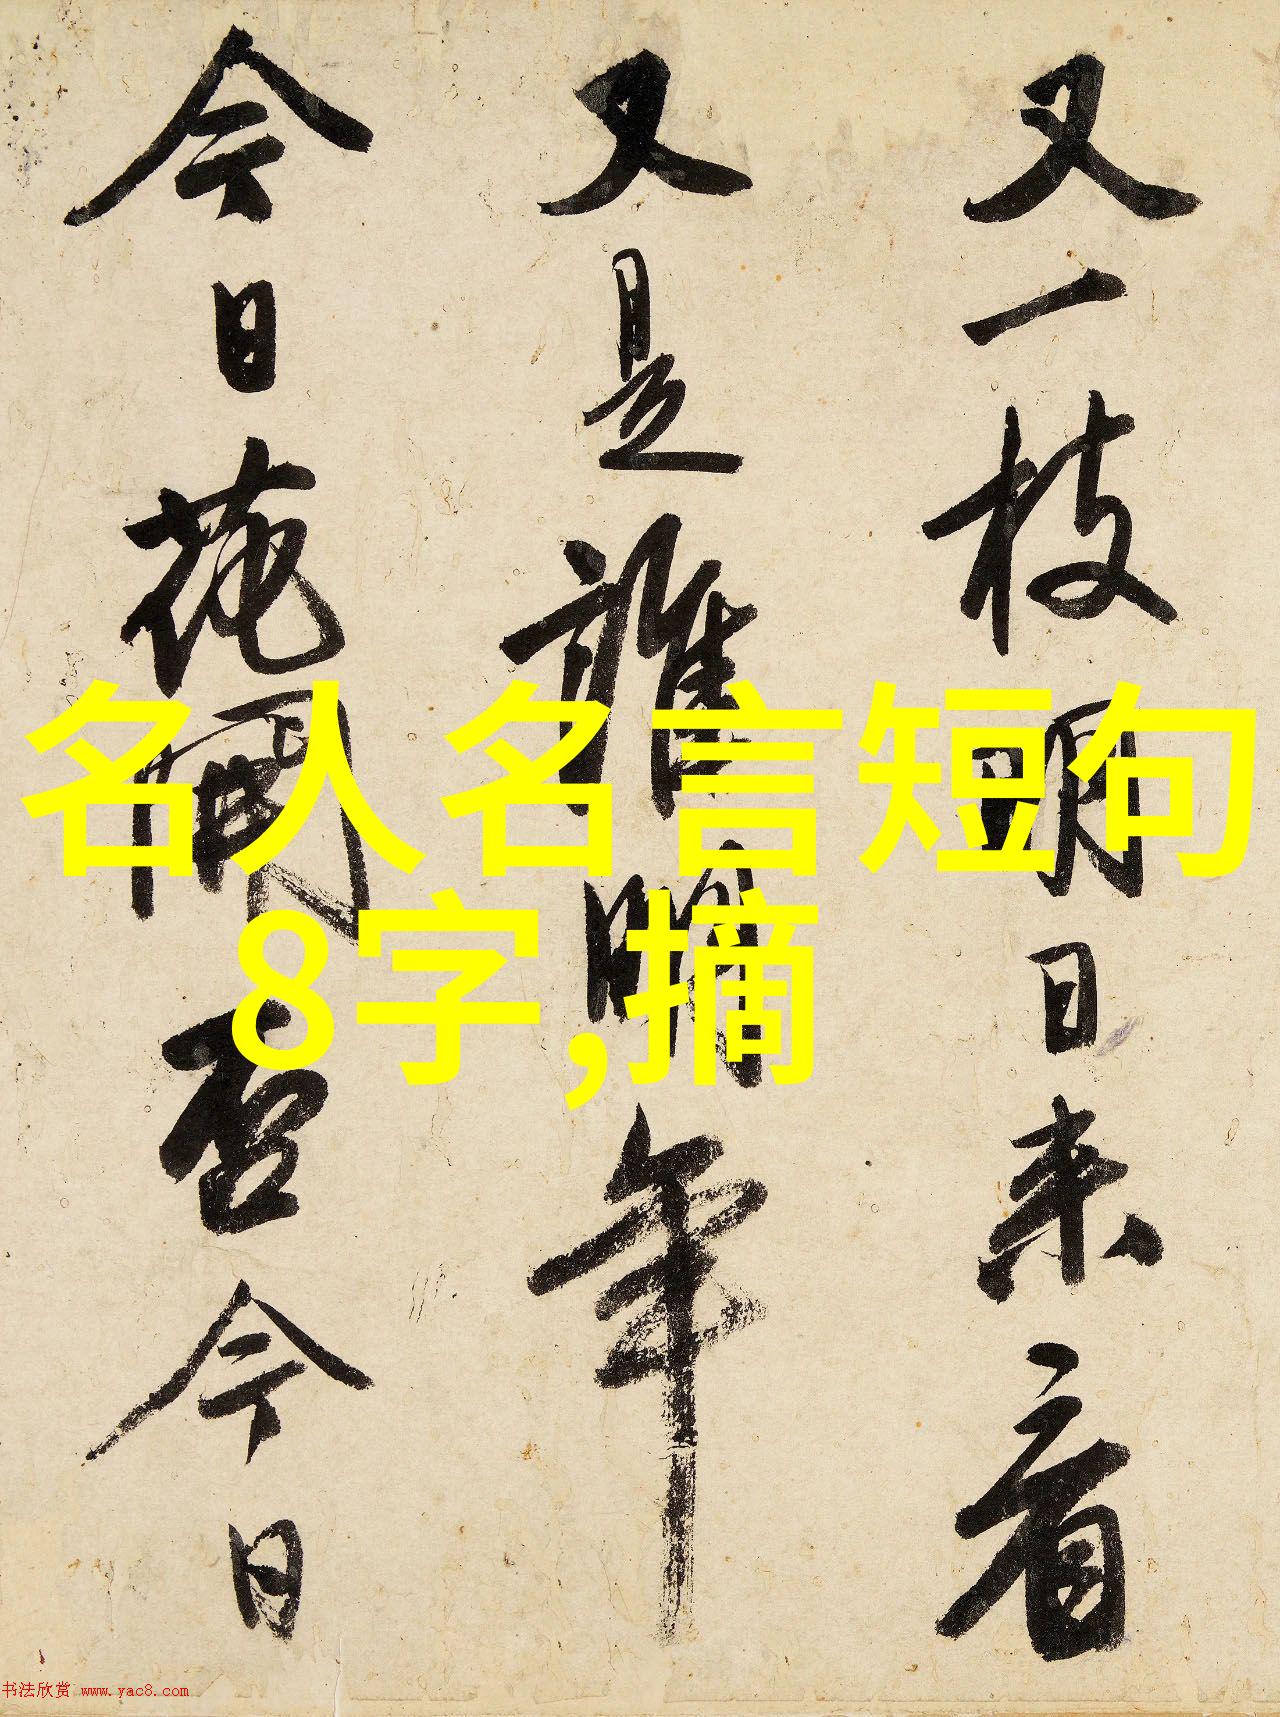 又一枝明日来看
又是誰明年
今日花開否今日
名人名言短句
8字,摘
书法欣赏 www.yac8.com